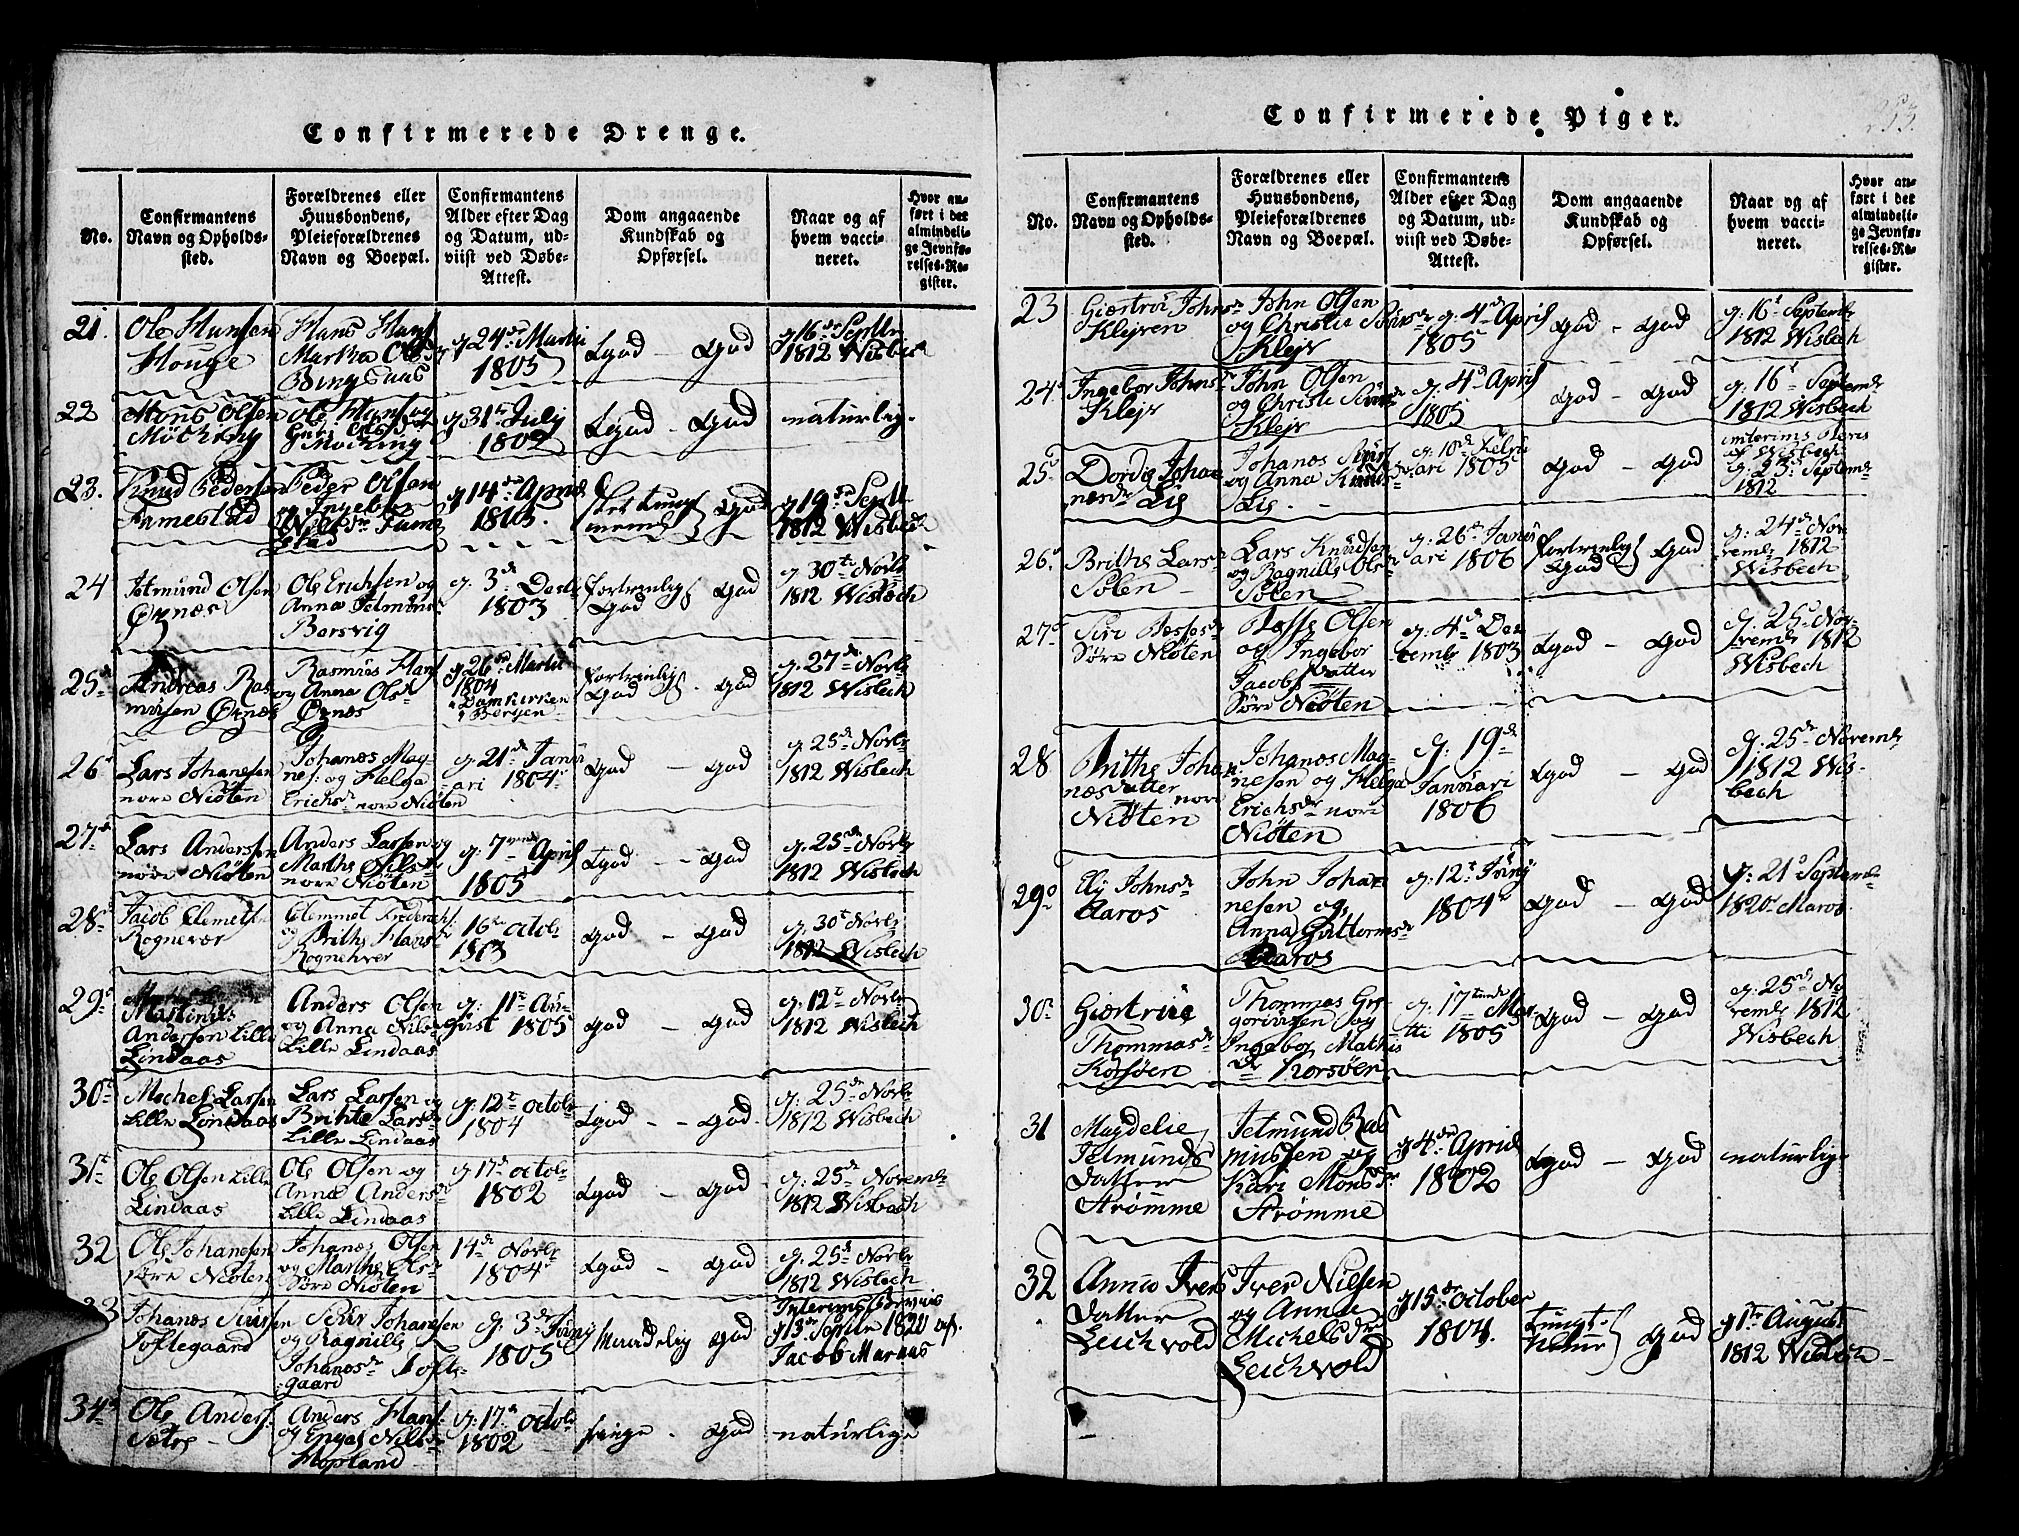 Confirmerede Drenge.
No.
Confirmantens
Navn og Opholds-
sted.
Forældrenes eller
Huusbondens,
Pleieforældrenes
Navn og Boepæl.
Confirmantens
Alder efter Dag
og Datum, ud-
viist ved Døbe-
Attest.
Dom angaaende
Kundskab og
Opførsel.
Naar og af
hvem vacci-
neret.
Hvor an-
ført i det
almindeli-
ge Jevnfø-
relses-Re-
gister.
21.
Ole Hansen
Houge
Hans Hans
Martha Olsd
g 24de Martii
1805
God - God
g 16de Septbr
1812 Wisbech
22
Mons Olsen
Moching
Ole Hans og
Mocking
g 31te July
1802
God - God
naturlig.
23.
Knud Pedersen
Famestad
Peder Olsen
og Ingebr
Nilsdr Fame
stad
g 14de April
1803.
God
g 19de Septb
1812 Wisbech
24
Jetmund Olsen
Øxnæs
Ole Erichsen og
Anna Jetmuns
Borsvig
g. 3de Decbr
1803
fortrinlig
God - God
g. 30te Novbr
1812 Wisbech
25de
Andreas Ras
musen Øxnæs
Rasmus Hans
og Anna Olsdr
Øxnæs
g 26de Martii
1804
Domkirken
i Bergen
fortrinlig
God - God
g. 27de Novbr
1812 Wisbech
26
Lars Johanesen
nore Niøten
Johanes Mag
nes: og Helga
Erichsdr nore Niøten
g. 21de Janu
ari 1804
God - God
g. 25de Novbr
1812 Wisbech
27de
Lars Andersen
nore Niøten
Anders Larsen og
Marthe Olsdr
nore Niøten
g. 7ende April
1805
God - God
g. 25de Novbr
1812 Wisbech
28de
Jacob Clemets
Rognevær
Clemmet Anders
og Brithe Hans
Rognehver
16de octob
1803
God - God
g. 30te Novbr
1812 Wisbech
29de
Martinus
Andersen Lille
Lindaas
Anders Olsen
og Anna Nils
Lille Lindaas
g: 11te Au
gust 1805
God - God
g. 12te Novbr
1812 Wisbech
30te
Michel Larsen
Lille Lindaas
Lars Larsen og
Brithe Larsdr
Lille Lindaas
g. 12te octob
1804
God - God
g. 25de Novbr
1812 Wisbech
31te
Ole Olsen Lille
Lindaas
Ole Olsen og
Anna Anders
Lille Lindaas
g 17de octob
1802
God - God
g. 25de Novemb
1812 Wisbech
32
Ole Johanesen
søre Niøten
Johanes Olsen
og Marthe Olsdr
Søre Niøten
14de Novbr
1804
God - God
g. 25de Novbr
1812 Wisbech
33
Johanes Siursen
Toftegaard
Siur Johanesen
og Ragnille
Johanesdr Tofte-
gaard
g. 3de Juny
1805
Maadelig God
Interims Beviis
g 13de Septbr 1820 af.
Jacob Maraas
34de
Ole Anders
Sætre
Anders Hans
og Engel Nilsdr
Hopland
g: 17de octob
1802
ringe - God
naturlige
Confirmerede Piger.
253.
No.
Confirmantens
Navn og Opholds-
sted.
Forældrenes eller
Huusbondens,
Pleieforældrenes
Navn og Boepæl.
Confirmantens
Alder efter Dag
og Datum, ud-
viist ved Døbe-
Attest.
Dom angaaende
Kundskab og
Opførsel.
Naar og af
hvem vacci-
neret.
Hvor an-
ført i det
almindeli-
ge Jevnfø-
relses-Re-
gister.
23
Giertrui Johnsd
Klejven
John Olsen
og Christie Siurs
Klejv
g. 4de April
1805
God - God
g. 16t Septembr
1812 Wisbech
24.
Ingebor Johns
Klejv
John Olsen
og Christie Siurs
Klejv
g. 4de April
1805
God - God
g: 16t Septembr
1812 Wisbech
25de
Dordei Joha
nesdr Lie
Johanes Siurs
og Anna Knudsdr
Lie.
g. 10de Febru
ari 1805
God - God
interims Bevis
af Wisbech
g: 23de Septemb
1812
26.
Brithe Larsdr
Solen
Lars Knudsen
og Ragnille Ols
Solen
g: 26de Janu
ari 1806
fortrinlig
God God
g: 24de Nov
vembr 1812
Wisbech
27de
Siri Basses
Søre Niøten
Basse Olsen
og Ingebor
Jacobs Datter
Søre Niøten
g: 4de De
cembr 1803
God - God
g. 25de No-
vembr 1812
Wisbech
28
Brithe Joha
nes Datter nore
Niøten
Johanes Mag-
nesen og Helga
Erichsdr nore
Niøten
g: 19de
Januari
1806
God - God
g: 25de Novemb
1812 Wis-
bech
29de
Eli Johnsdr
Aaros
John Joha
nesen og
Anna Guttormsdr
Aaros
g: 12te Juny
1804
God - God
g: 21de Septemb
1820 Maros.
30te
Giertrue
Thommasdr
Korsøen
Thommas Gre
goriusen og
Ingebor Mathis
dr Korsøen
g. 17tende Mar
tii 1805
God - God
g: 25de No
vembr 1812
Wisbech
31
Magdelie
Jetmunds
Datter
Strømme
Jetmund Ras
mussen og
Kari Monsdr
Strømme
g 4de April
1802
God - God
naturlig
32
Anna Ivers
Datter
Leichvold
Iver Nielsen
og Anna
Michelsdr
Leichvold
g 15de october
1804.
God
g 1te August
1812 Wisbech